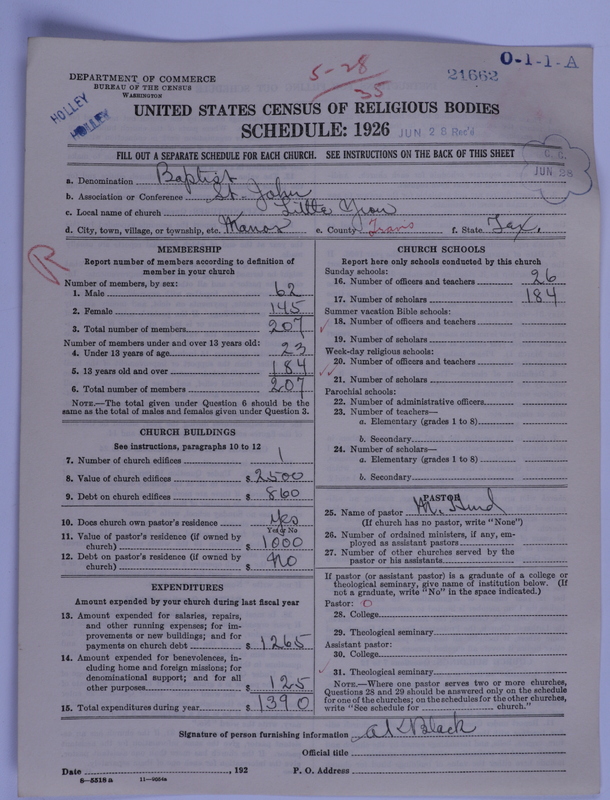 0-1-1-A
DEPARTMENT OF COMMERCE
BUREAU OF THE CENSUS
WASHINGTON
5-28
35
21662
HOLLEY
HOLLEY
UNITED STATES CENSUS OF RELIGIOUS BODIES
SCHEDULE: 1926 JUN 28 Rec'd
FILL OUT A SEPARATE SCHEDULE FOR EACH CHURCH. SEE INSTRUCTIONS ON THE BACK OF THIS SHEET
C. C.
JUN 28
a. Denomination Baptist
b. Association or Conference St. John
c. Local name of church Little Zion
d. City, town, village, or township, etc. Manor e. County Travis f. State Tex.
R
MEMBERSHIP
Report number of members according to definition of
member in your church
Number of members, by sex:
1. Male 62
2. Female 145
3. Total number of members 207
Number of members under and over 13 years old:
4. Under 13 years of age 23
5. 13 years old and over 184
6. Total number of members 207
NOTE.—The total given under Question 6 should be the
same as the total of males and females given under Question 3.
CHURCH BUILDINGS
See instructions, paragraphs 10 to 12
7. Number of church edifices 1
8. Value of church edifices $ 2500
9. Debt on church edifices $ 860
10. Does church own pastor's residence yes
Yes or No
11. Value of pastor's residence (if owned by
church) $ 1000
12. Debt on pastor's residence (if owned by
church) $ No
EXPENDITURES
Amount expended by your church during last fiscal year
13. Amount expended for salaries, repairs,
and other running expenses; for im-
provements or new buildings; and for
payments on church debt $ 1265
14. Amount expended for benevolences, in-
cluding home and foreign missions; for
denominational support; and for all
other purposes $ 125
15. Total expenditures during year $ 1390
CHURCH SCHOOLS
Report here only schools conducted by this church
Sunday schools:
16. Number of officers and teachers 26
17. Number of scholars 184
Summer vacation Bible schools:
18. Number of officers and teachers
19. Number of scholars
Week-day religious schools:
20. Number of officers and teachers
21. Number of scholars
Parochial schools:
22. Number of administrative officers
23. Number of teachers—
a. Elementary (grades 1 to 8)
b. Secondary
24. Number of scholars—
a. Elementary (grades 1 to 8)
b. Secondary
PASTOR
25. Name of pastor M. Hurd
(If church has no pastor, write "None")
26. Number of ordained ministers, if any, em-
ployed as assistant pastors
27. Number of other churches served by the
pastor or his assistants
If pastor (or assistant pastor) is a graduate of a college or
theological seminary, give name of institution below. (If
not a graduate, write "No" in the space indicated.)
Pastor: 0
28. College
29. Theological seminary
Assistant pastor:
30. College
31. Theological seminary
NOTE.—Where one pastor serves two or more churches,
Questions 28 and 29 should be answered only on the schedule
for one of the churches; on the schedules for the other churches,
write "See schedule for church."
Signature of person furnishing information A K Black
Official title
Date , 192 P. O. Address
8—5518 a 11—9054a